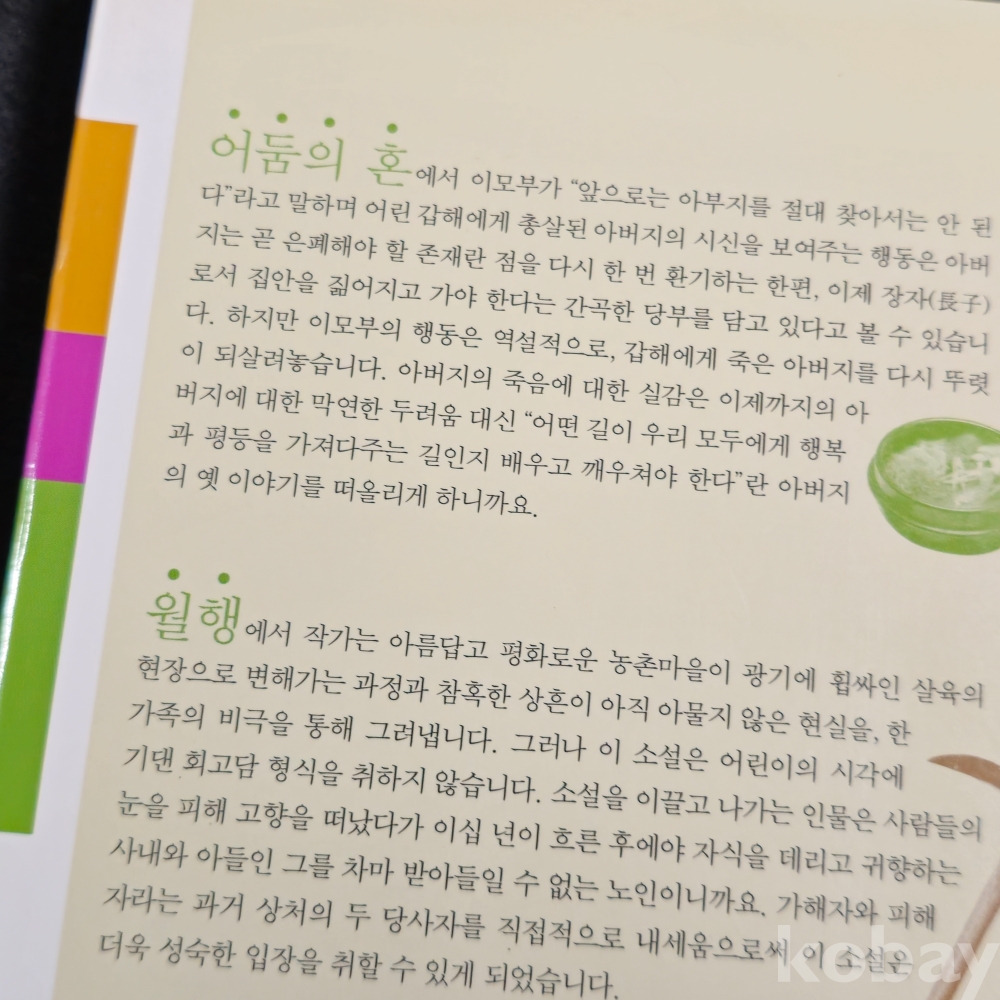 어둠의 혼에서 이모부가 “앞으로는 아부지를 절대 찾아서는 안 된
다”라고 말하며 어린 갑해에게 총살된 아버지의 시신을 보여주는 행동은 아버
지는 곧 은폐해야 할 존재란 점을 다시 한 번 환기하는 한편, 이제 장자(長子)
로서 집안을 짊어지고 가야 한다는 간곡한 당부를 담고 있다고 볼 수 있습니
다. 하지만 이모부의 행동은 역설적으로, 갑해에게 죽은 아버지를 다시 뚜렷
이 되살려놓습니다. 아버지의 죽음에 대한 실감은 이제까지의 아
버지에 대한 막연한 두려움 대신 “어떤 길이 우리 모두에게 행복
과 평등을 가져다주는 길인지 배우고 깨우쳐야 한다”란 아버지
의 옛 이야기를 떠올리게 하니까요.
월행에서 작가는 아름답고 평화로운 농촌마을이 광기에 휩싸인 살육의
현장으로 변해가는 과정과 참혹한 상흔이 아직 아물지 않은 현실을, 한
가족의 비극을 통해 그려냅니다. 그러나 이 소설은 어린이의 시각에
기댄 회고담 형식을 취하지 않습니다. 소설을 이끌고 나가는 인물은 사람들의
눈을 피해 고향을 떠났다가 이십 년이 흐른 후에야 자식을 데리고 귀향하는
사내와 아들인 그를 차마 받아들일 수 없는 노인이니까요. 가해자와 피해
자라는 과거 상처의 두 당사자를 직접적으로 내세움으로써 이 소설은
더욱 성숙한 입장을 취할 수 있게 되었습니다.
kobay